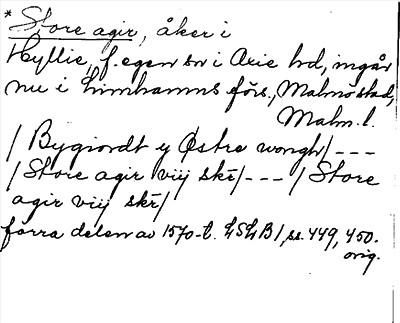 * Store agir, åker i
Hyllie, f. egen sn i Oxie hd, ingår
nu i Limhamns förs., Malmö stad,
Malm. l.
/ Bygiordt y Østre wongh/ ---
/ Store agir viij skr/ --- / Store
agir viij skr/
förra delen av 1570-t. LSLB 1, ss. 449, 450.
orig.